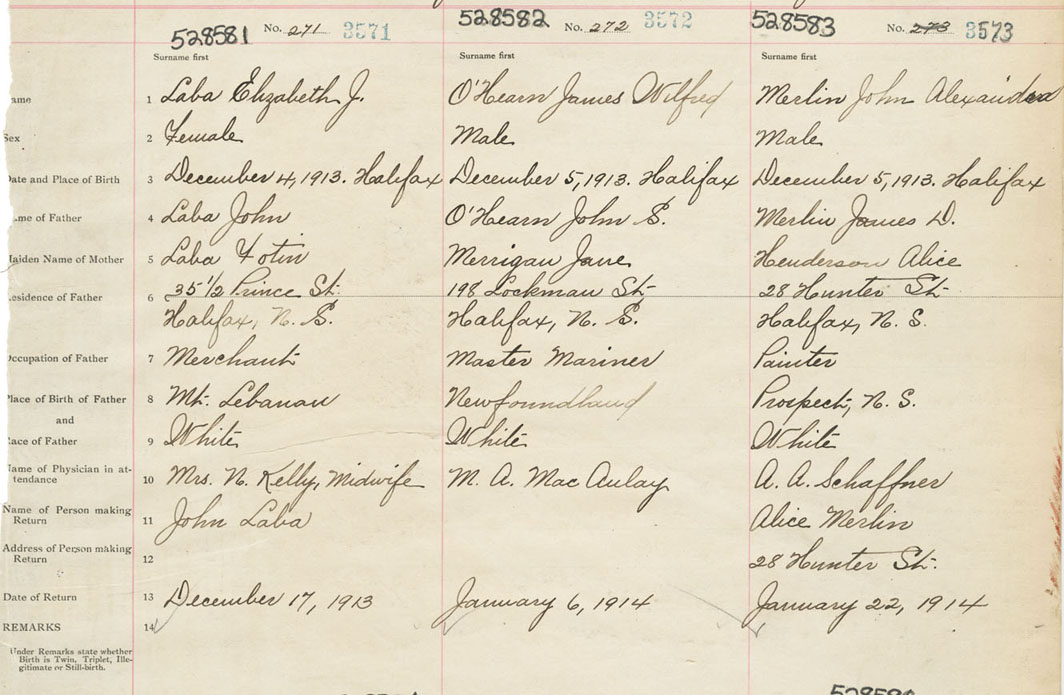 528581 No. 271 3571 528582 No. 272 3572 528583 No. 273 3573
Surname first Surname first Surname first
ame 1 Laba Elizabeth J. O'Hearn James Wilfred Merlin John Alexander
Sex 2 Female Male Male
Date and Place of Birth 3 December 4, 1913. Halifax December 5, 1913. Halifax December 5, 1913. Halifax
me of Father 4 Laba John O'Hearn John S. Merlin James D.
Maiden Name of Mother 5 Laba Fotin Merrigan Jane Henderson Alice
esidence of Father 6 35 1/2 Prince St. 198 Lockman St. 28 Hunter St.
Halifax, N. S. Halifax, N. S. Halifax, N. S.
Occupation of Father 7 Merchant Master Mariner Painter
Place of Birth of Father 8 Mt. Lebanan Newfoundland Prospect, N. S.
and
ace of Father 9 White White White
Name of Physician in at-
tendance 10 Mrs. N. Kelly, Midwife M. A. MacAulay A. A. Schaffner
Name of Person making
Return 11 John Laba Alice Merlin
Address of Person making
Return 12 28 Hunter St.
Date of Return 13 December 17, 1913 January 6, 1914 January 22, 1914
REMARKS 14
Under Remarks state whether
Birth is Twin, Triplet, Ille-
gitimate or Still-birth.